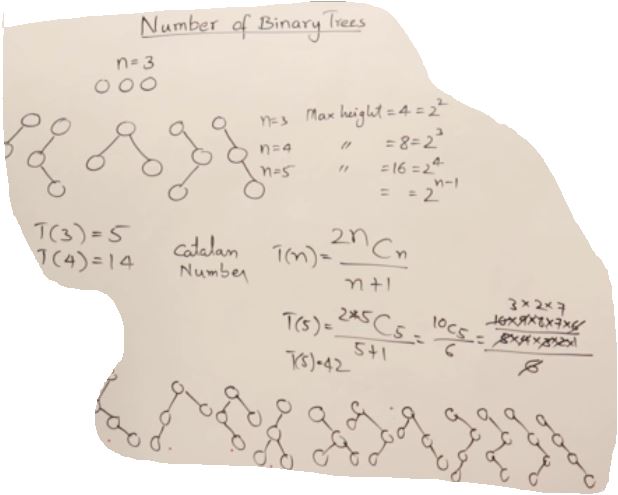 Number of Binary Trees
n=3
n=3 Max height = 4 = 2^2
n=4 " = 8 = 2^3
n=5 " = 16 = 2^4
= = 2^{n-1}
T(3) = 5
T(4) = 14
Catalan
Number
T(n) = 2nCn
n+1
3×2×7
T(5) = 2*5C5 = 10C5 = 10×9×8×7×6
5+1 6 5×4×3×2×1
6
T(5)=42